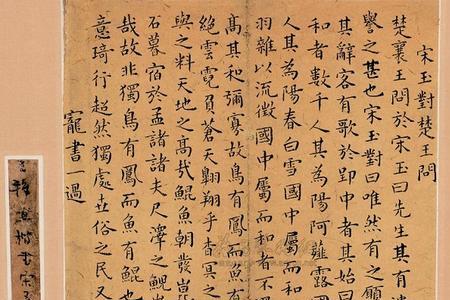 宋玉對楚王問
楚襄王問於宋玉曰先生其有
譽之甚也宋玉對曰唯然有之願
其辭客有歌於郢中者其始
和者數千人其為陽阿薤露國
人其為陽春白雪國中屬而和
羽雜以流徵國中屬而和者不
高其和彌寡故鳥有鳳而魚有
絕雲霓負蒼天翺翔乎杳冥之
與之料天地之高哉鯤魚朝發崑
石暮宿於孟諸諸夫尺澤之鯢豈
哉故非獨鳥有鳳而魚有鯤也
意琦行超然獨處世俗之民又
寵書一過
雅宜楷書宋